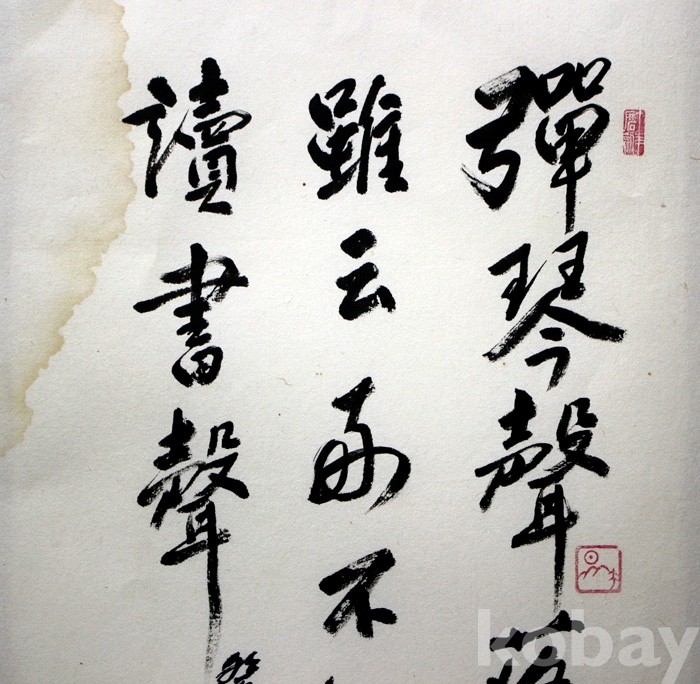 彈琴聲
雖云不
讀書聲
kobay